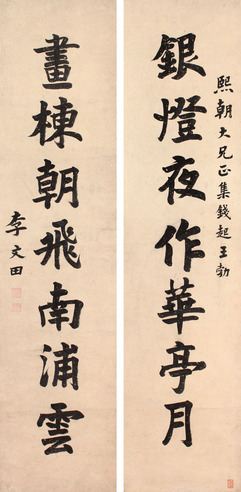 熙朝大兄正集錢起王勃
銀燈夜作華亭月
畫棟朝飛南浦雲
李文田